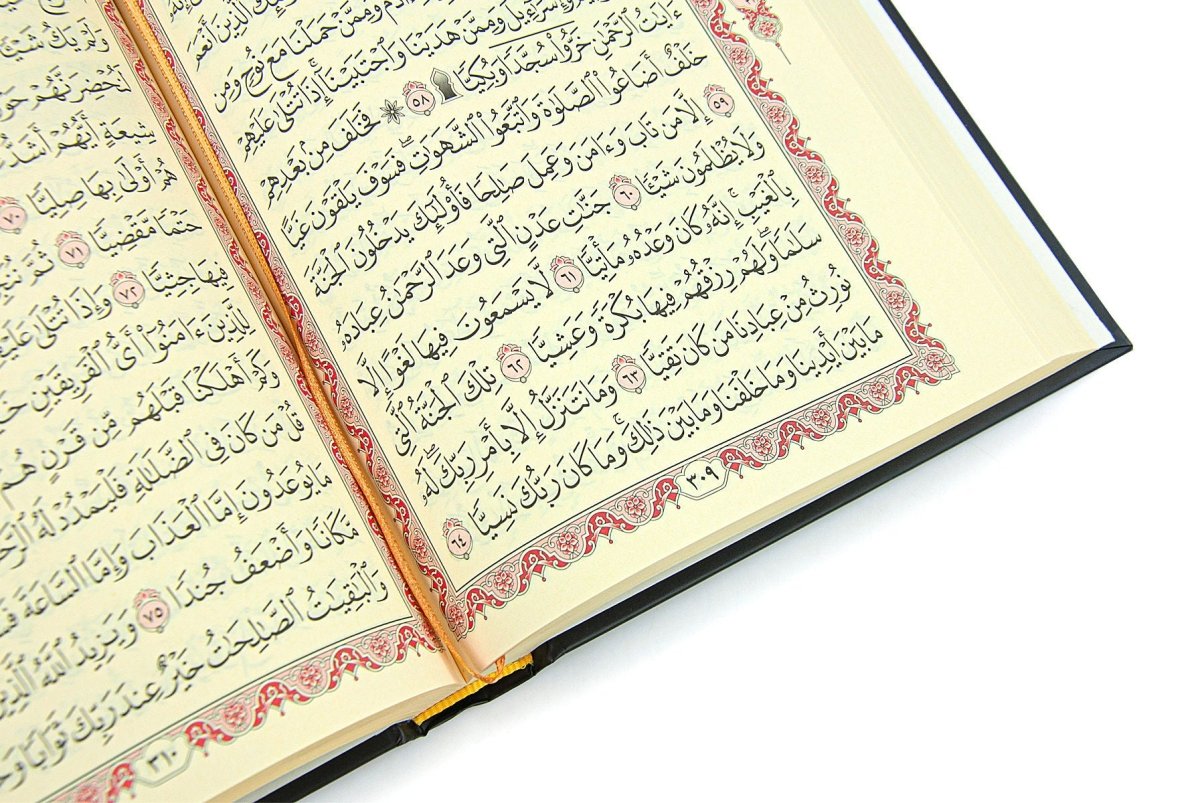 ٱلَّذِينَ أَنْعَمَ
ءَادَمَ وَمِمَّنْ حَمَلْنَا مَعَ نُوحٍ وَمِن
وَإِسْرَٰٓءِيلَ وَمِمَّنْ هَدَيْنَا وَٱجْتَبَيْنَآ ۚ إِذَا تُتْلَىٰ عَلَيْهِمْ
ءَايَٰتُ ٱلرَّحْمَٰنِ خَرُّوا۟ سُجَّدًا وَبُكِيًّا ۩ ٥٨ ۞ فَخَلَفَ مِنۢ بَعْدِهِمْ
خَلْفٌ أَضَاعُوا۟ ٱلصَّلَوٰةَ وَٱتَّبَعُوا۟ ٱلشَّهَوَٰتِ ۖ فَسَوْفَ يَلْقَوْنَ غَيًّا
٥٩ إِلَّا مَن تَابَ وَءَامَنَ وَعَمِلَ صَٰلِحًا فَأُو۟لَٰٓئِكَ يَدْخُلُونَ ٱلْجَنَّةَ
وَلَا يُظْلَمُونَ شَيْـًٔا ٦٠ جَنَّٰتِ عَدْنٍ ٱلَّتِى وَعَدَ ٱلرَّحْمَٰنُ عِبَادَهُۥ
بِٱلْغَيْبِ ۚ إِنَّهُۥ كَانَ وَعْدُهُۥ مَأْتِيًّا ٦١ لَّا يَسْمَعُونَ فِيهَا لَغْوًا إِلَّا
سَلَٰمًا ۖ وَلَهُمْ رِزْقُهُمْ فِيهَا بُكْرَةً وَعَشِيًّا ٦٢ تِلْكَ ٱلْجَنَّةُ ٱلَّتِى
نُورِثُ مِنْ عِبَادِنَا مَن كَانَ تَقِيًّا ٦٣ وَمَا نَتَنَزَّلُ إِلَّا بِأَمْرِ رَبِّكَ ۖ لَهُۥ
مَا بَيْنَ أَيْدِينَا وَمَا خَلْفَنَا وَمَا بَيْنَ ذَٰلِكَ ۚ وَمَا كَانَ رَبُّكَ نَسِيًّا ٦٤
٣٠٩
وَلَمْ يَكُ شَيْـًٔا
لَنُحْضِرَنَّهُمْ حَوْلَ
شِيعَةٍ أَيُّهُمْ أَشَدُّ
هُمْ أَوْلَىٰ بِهَا صِلِيًّا ٧٠
حَتْمًا مَّقْضِيًّا ٧١ ثُمَّ
فِيهَا جِثِيًّا ٧٢ وَإِذَا تُتْلَىٰ
لِلَّذِينَ ءَامَنُوٓا۟ أَىُّ ٱلْفَرِيقَيْنِ
وَكَمْ أَهْلَكْنَا قَبْلَهُم مِّن قَرْنٍ هُمْ
قُلْ مَن كَانَ فِى ٱلضَّلَٰلَةِ فَلْيَمْدُدْ لَهُ
مَا يُوعَدُونَ إِمَّا ٱلْعَذَابَ وَإِمَّا ٱلسَّاعَةَ
مَّكَانًا وَأَضْعَفُ جُندًا ٧٥ وَيَزِيدُ ٱللَّهُ
وَٱلْبَٰقِيَٰتُ ٱلصَّٰلِحَٰتُ خَيْرٌ عِندَ رَبِّكَ ثَوَابًا
٣١٠